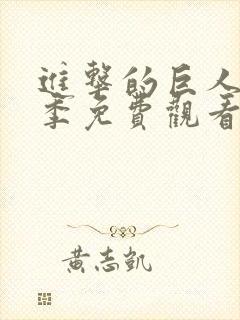 進擊的巨人
季免費觀看
黃志凱